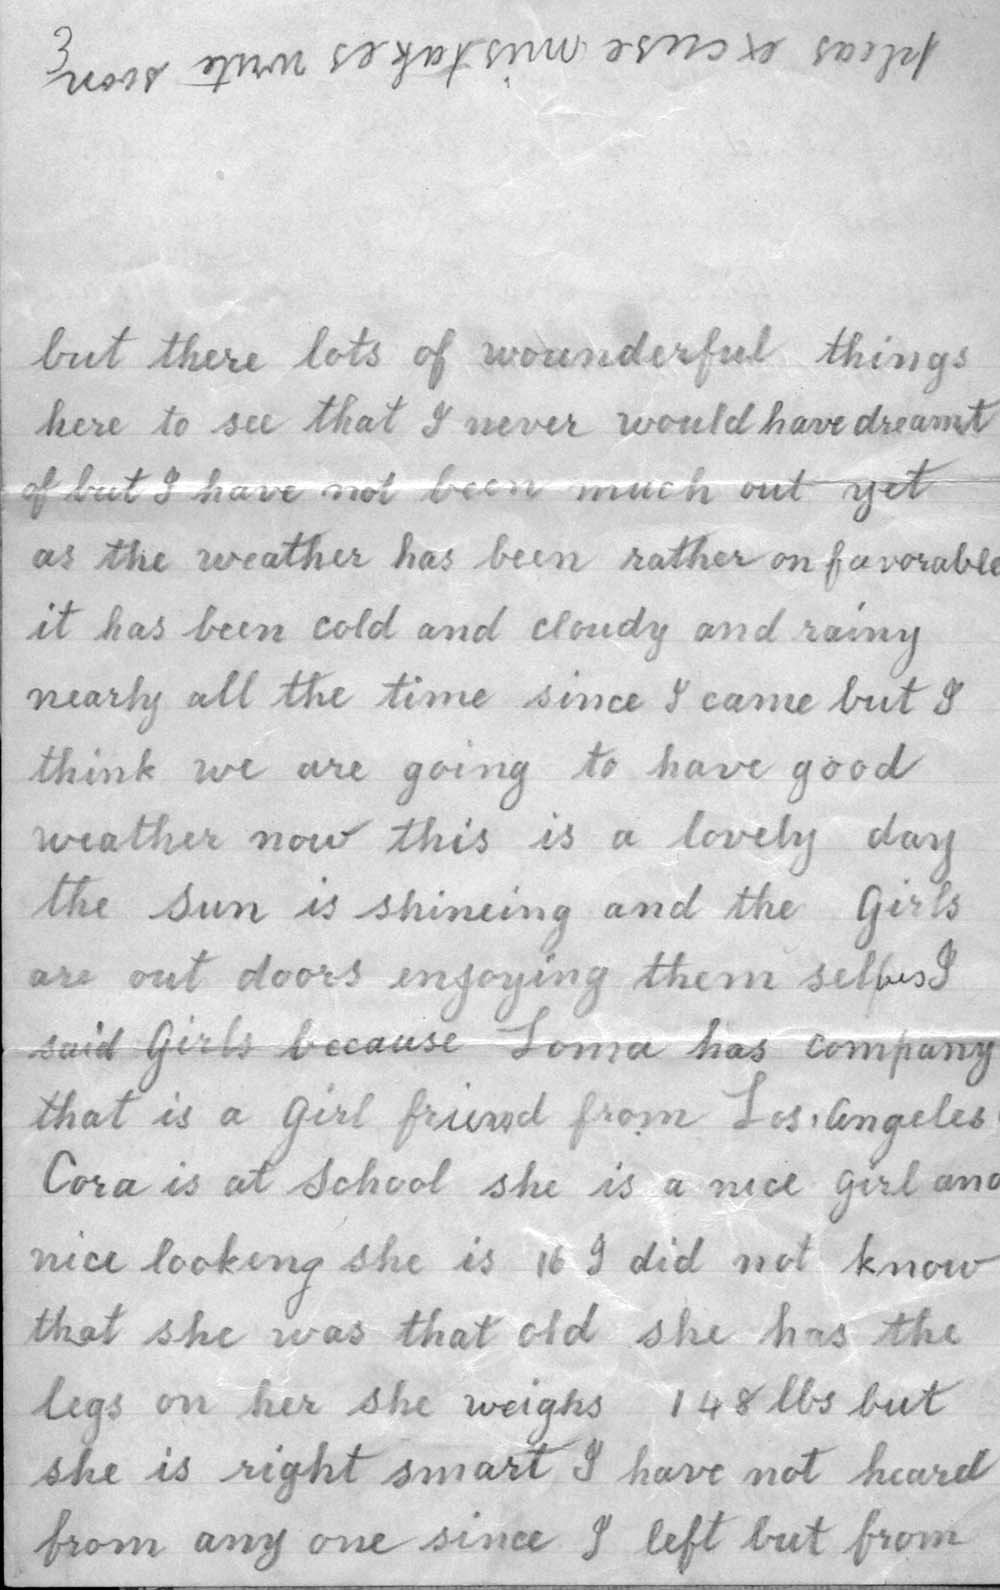 pleas excuse mistakes write soon
but there lots of wounderful things
here to see that I never would have dreamt
of but I have not been much out yet
as the weather has been rather onfavorable
it has been cold and cloudy and rainy
nearly all the time since I came but I
think we are going to have good
weather now this is a lovely day
the sun is shineing and the Girls
are out doors enjoying them selves I
said Girls because Loma has company
that is a Girl friend from Los. Angeles
Cora is at School she is a nice girl and
nice looking she is 16 I did not know
that she was that old she has the
legs on her she weighs 148 lbs but
she is right smart I have not heard
from any one since I left but from